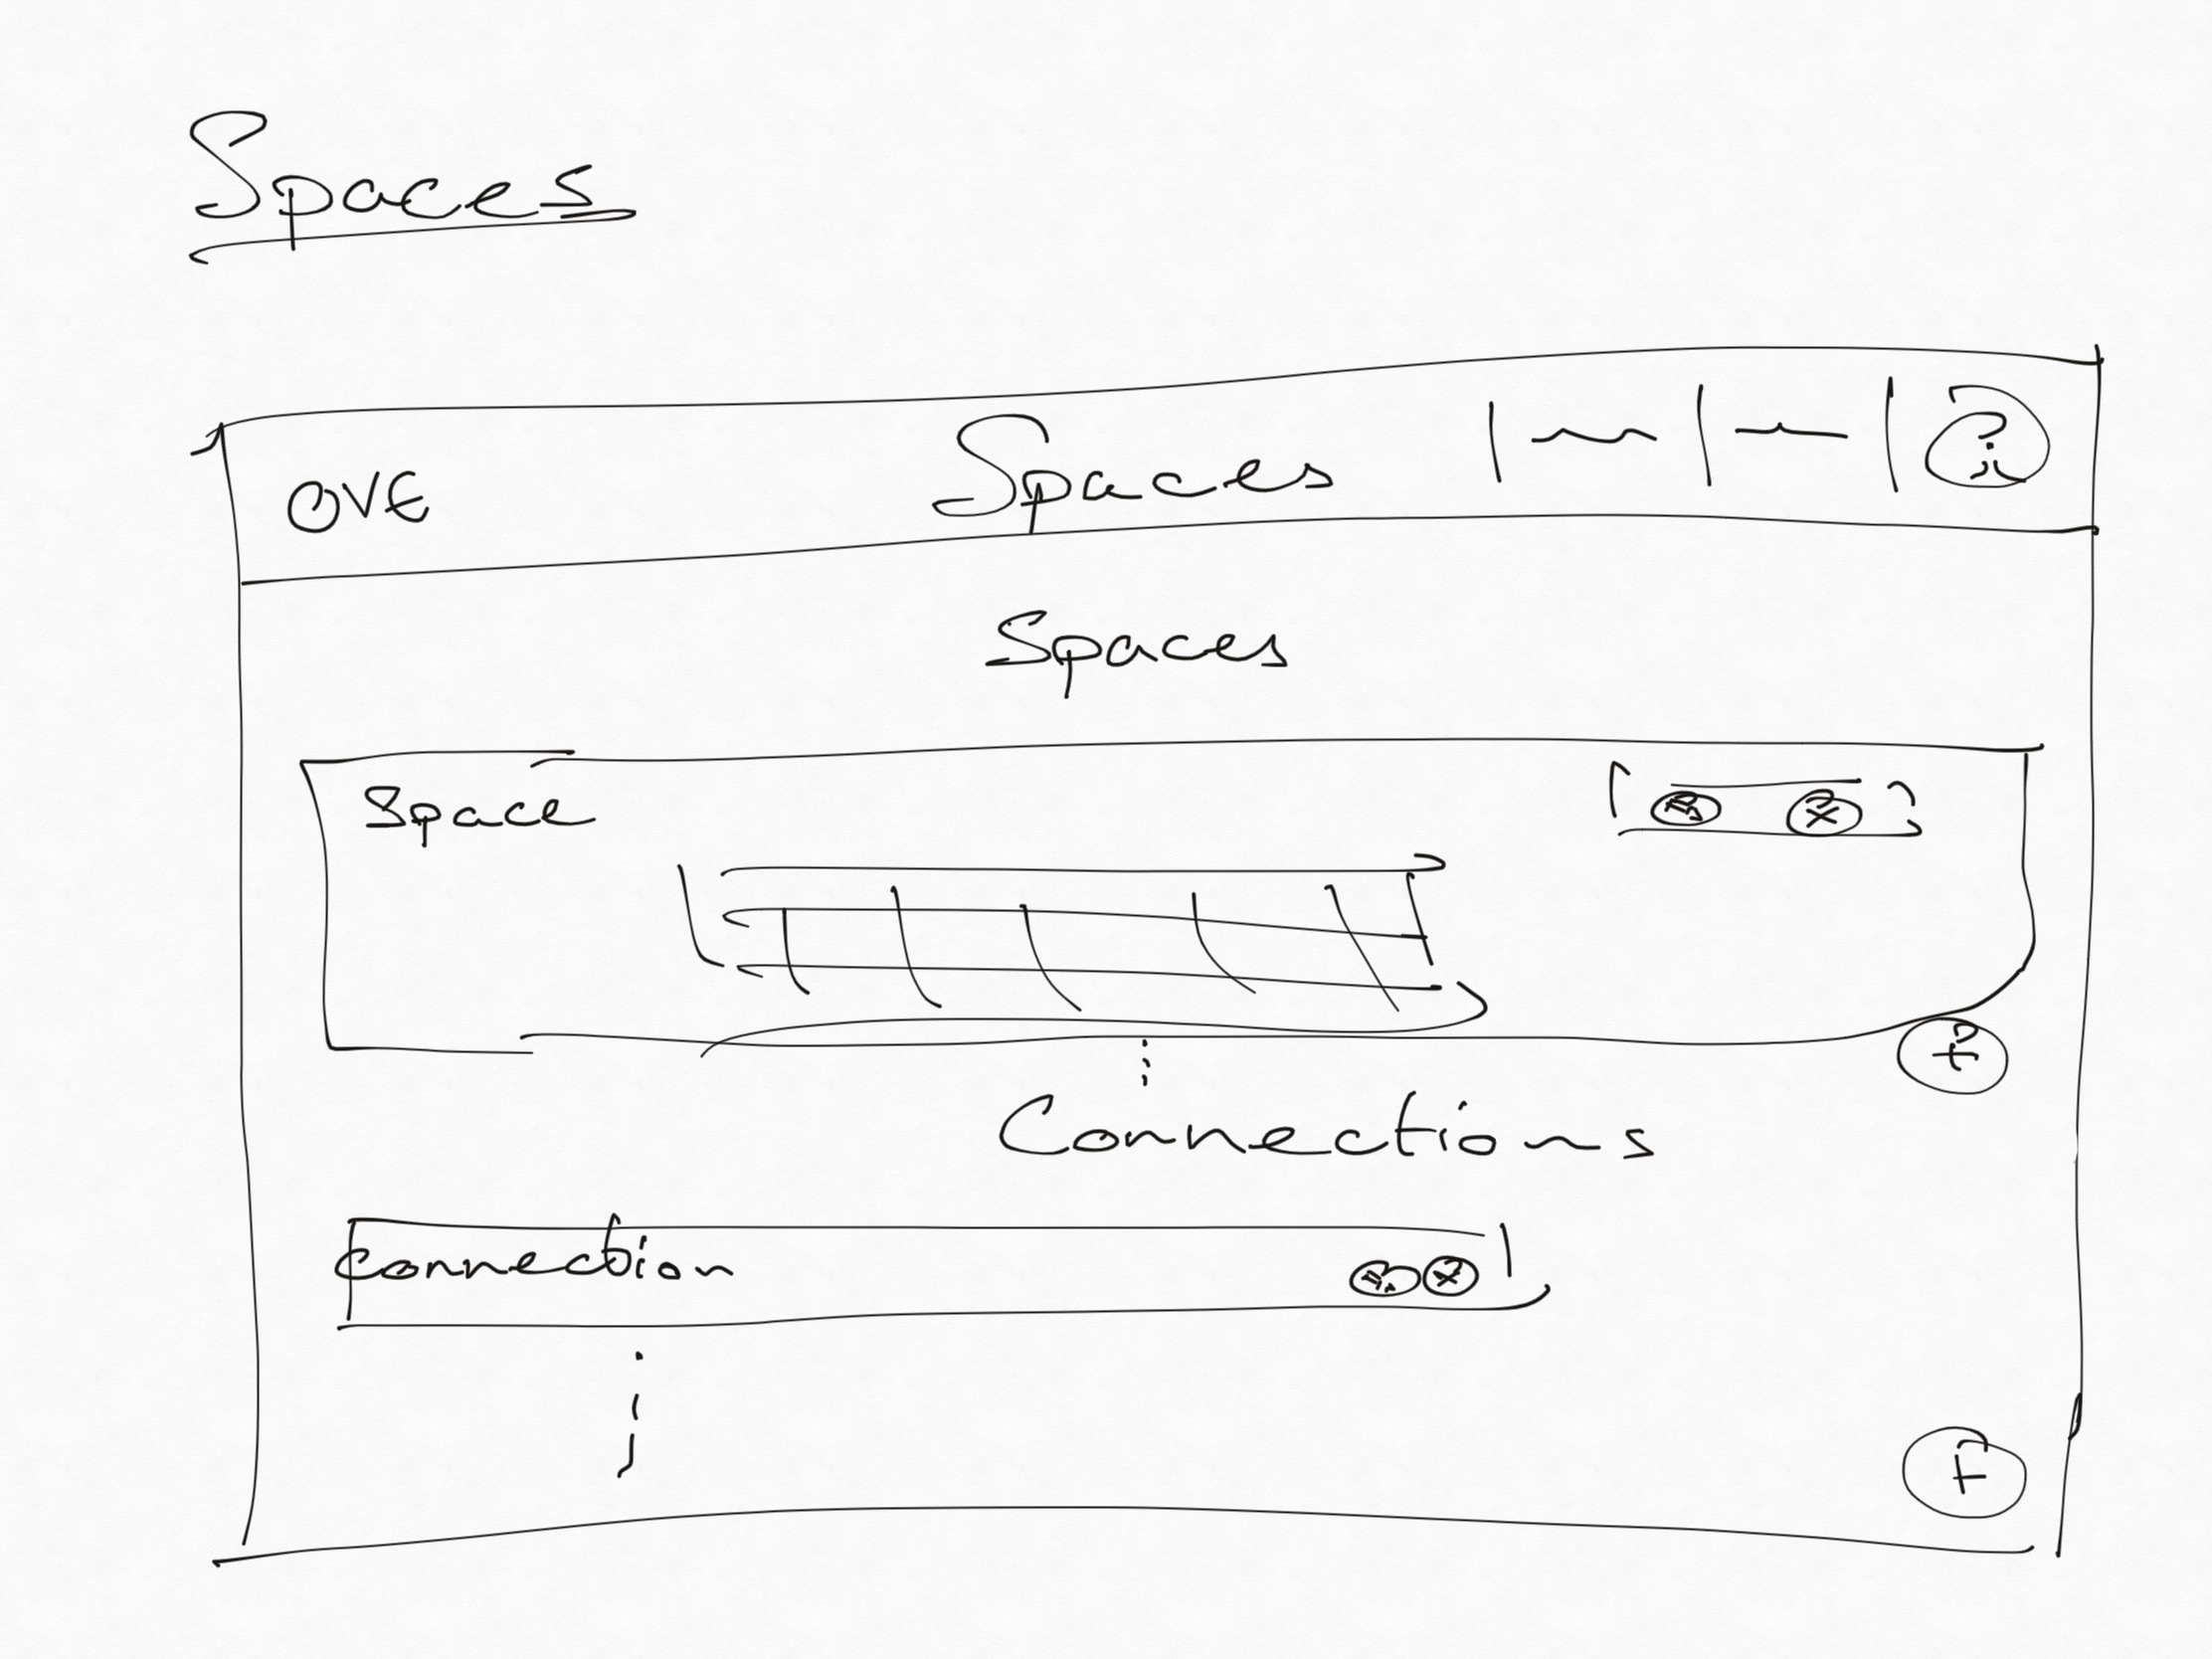 Spaces
OVE Spaces
Spaces
Space
Connections
Connection